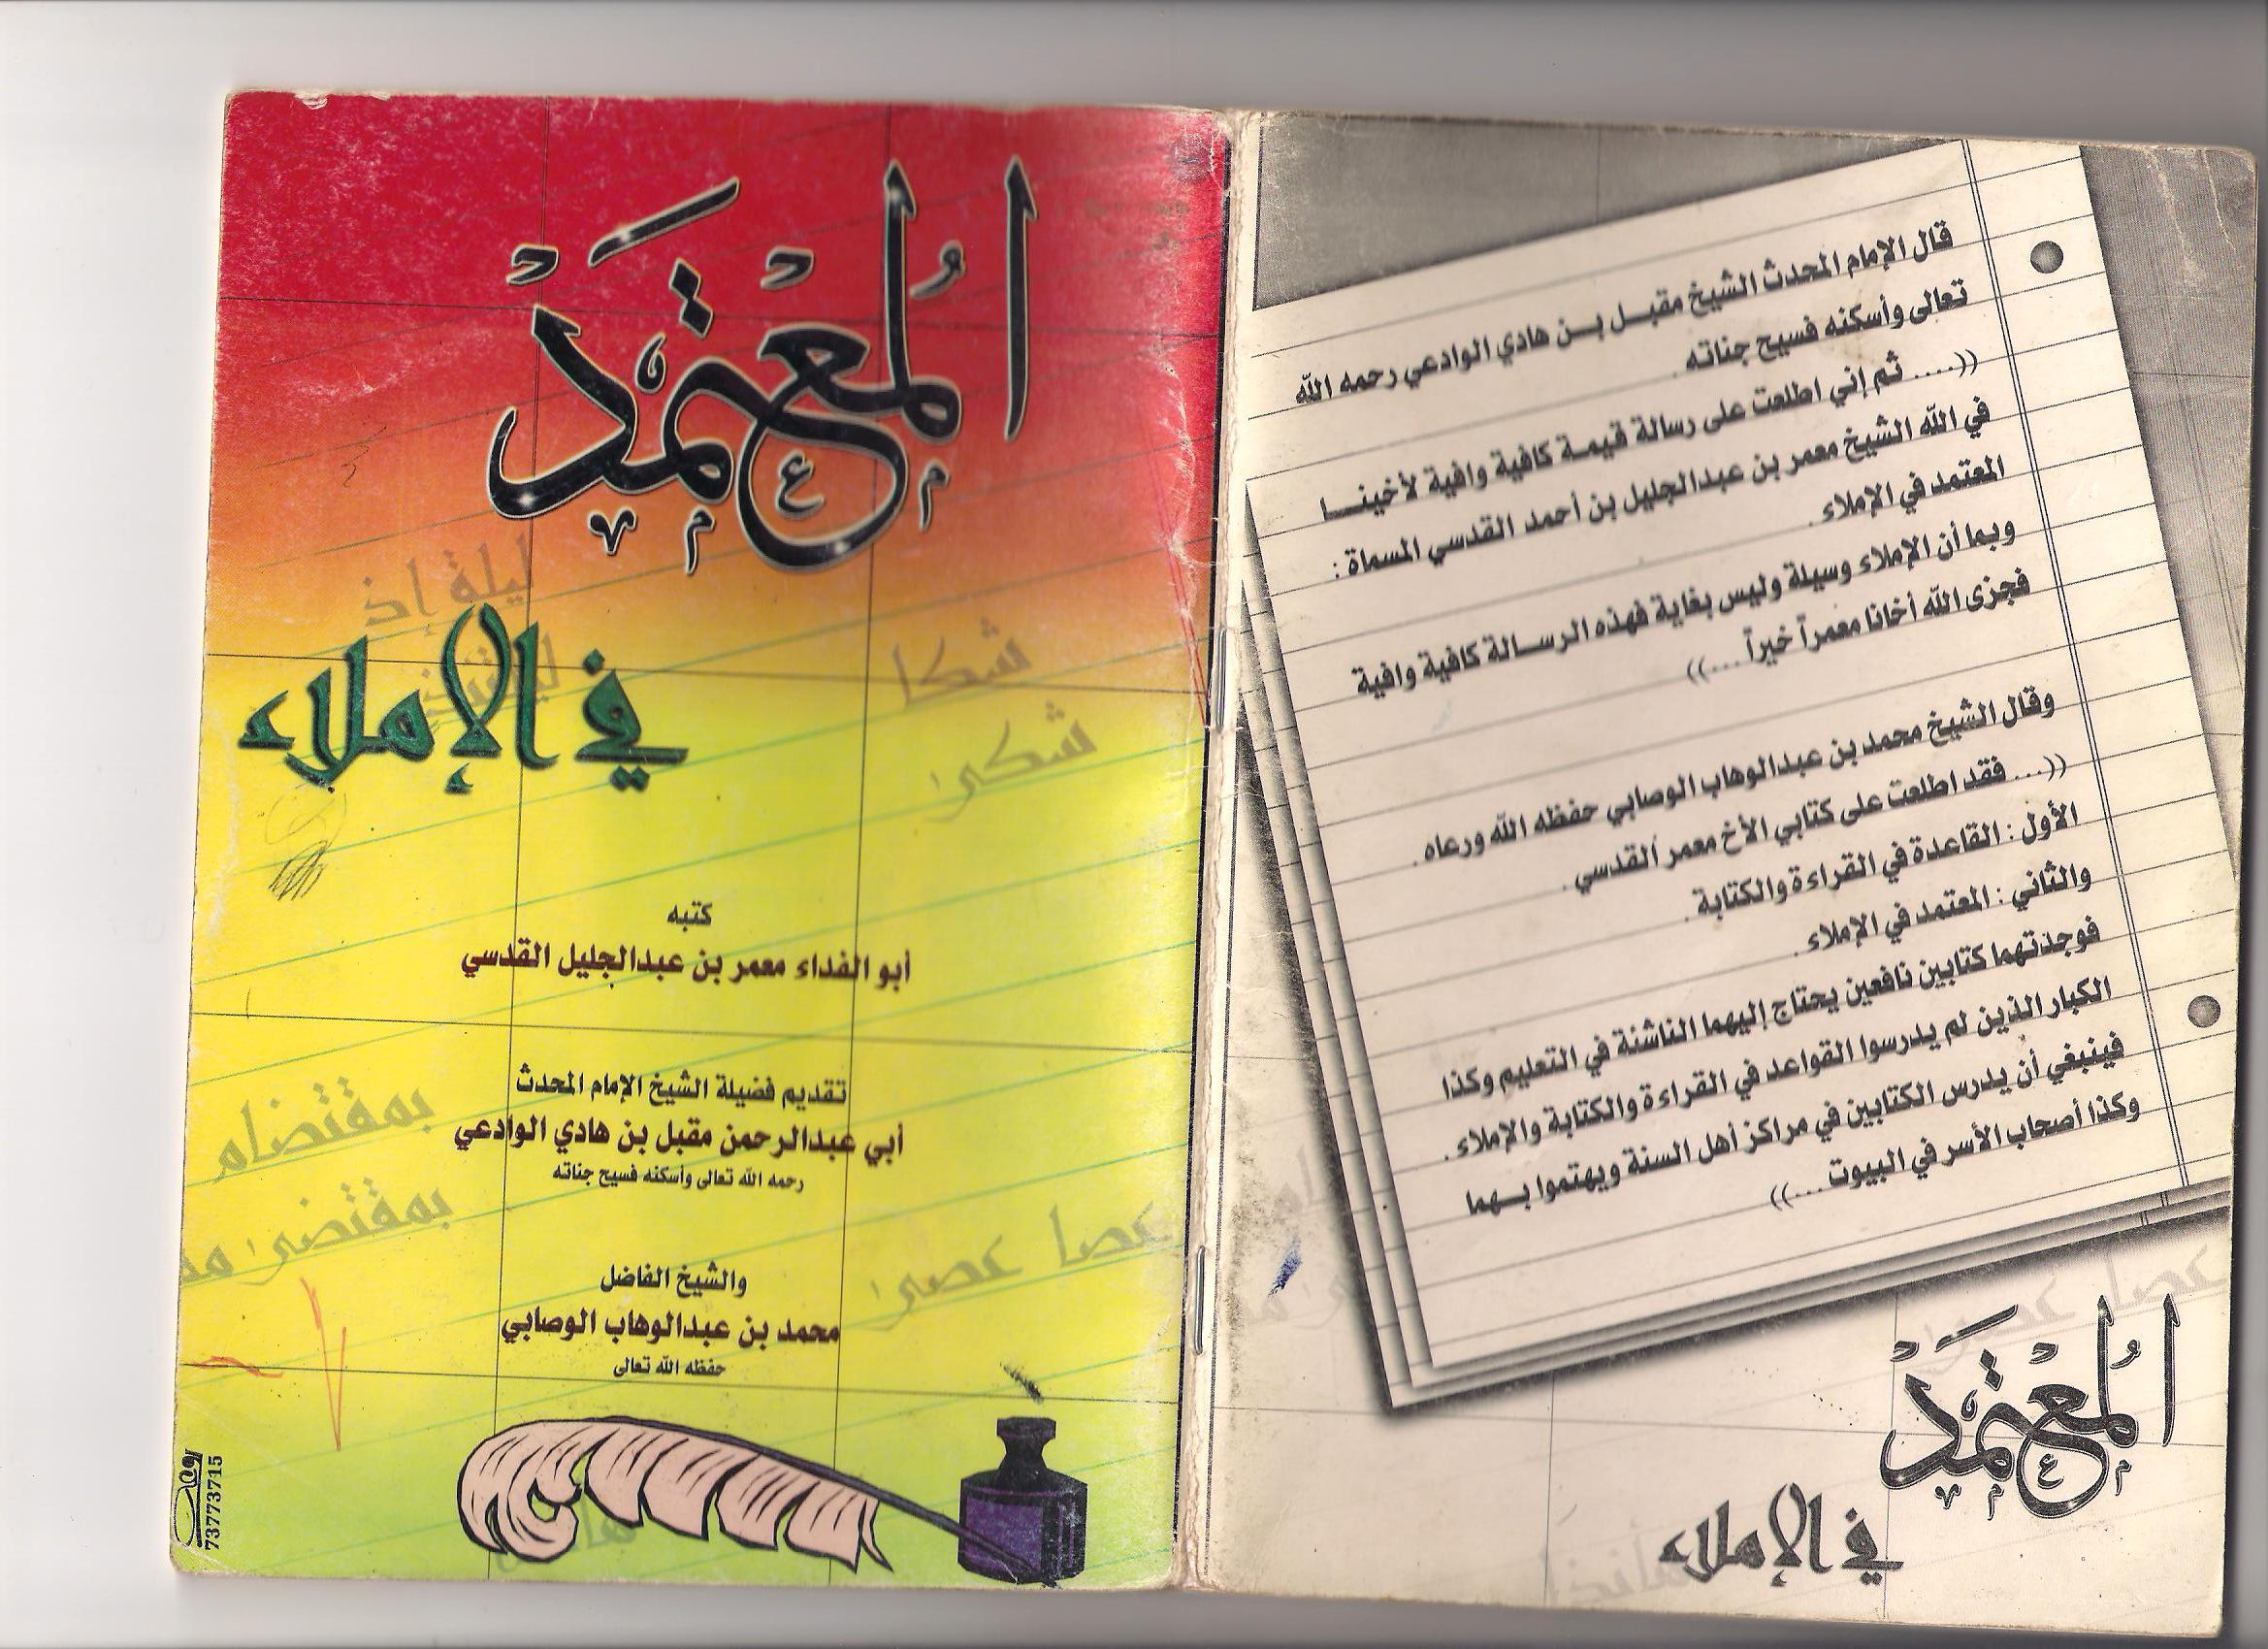 المُعْتَمَدْ
في الإملاء
ليلة إذ
ليلتئذٍ
شكا
شكى
كتبه
أبو الفداء معمر بن عبدالجليل القدسي
تقديم فضيلة الشيخ الإمام المحدث
أبي عبدالرحمن مقبل بن هادي الوادعي
رحمه الله تعالى وأسكنه فسيح جناته
والشيخ الفاضل
محمد بن عبدالوهاب الوصابي
حفظه الله تعالى
بمقتضام
بمقتضى
عصا عصى
73773715
قال الإمام المحدث الشيخ مقبل بن هادي الوادعي رحمه الله
تعالى وأسكنه فسيح جناته.
((.... ثم إني اطلعت على رسالة قيمة كافية وافية لأخينا
في الله الشيخ معمر بن عبدالجليل بن أحمد القدسي المسماة :
المعتمد في الإملاء.
وبما أن الإملاء وسيلة وليس بغاية فهذه الرسالة كافية وافية
فجزى الله أخانا معمراً خيراً...))
وقال الشيخ محمد بن عبدالوهاب الوصابي حفظه الله ورعاه.
((... فقد اطلعت على كتابي الأخ معمر القدسي.
الأول : القاعدة في القراءة والكتابة.
والثاني : المعتمد في الإملاء.
فوجدتهما كتابين نافعين يحتاج إليهما الناشئة في التعليم وكذا
الكبار الذين لم يدرسوا القواعد في القراءة والكتابة والإملاء.
فينبغي أن يدرس الكتابين في مراكز أهل السنة ويهتموا بهما
وكذا أصحاب الأسر في البيوت...))
عصا عصى
المُعْتَمَدْ
في الإملاء